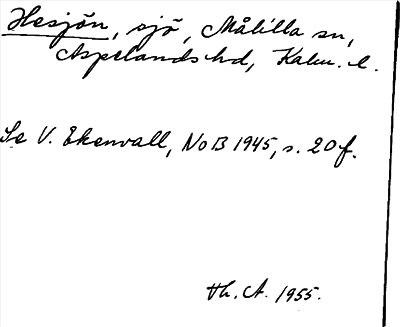 Hesjön, sjö, Målilla sn,
Aspelands hd, Kalm. l.
Se V. Ekenvall, NoB 1945, s. 20 f.
Th. A. 1955.